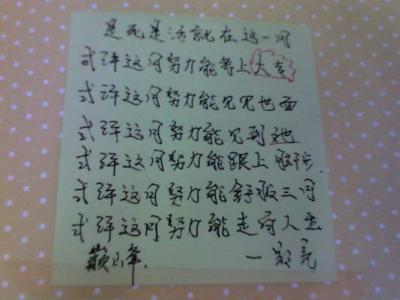 是死是活就在这一周
或许这周努力能考上大专
或许这周努力能见见世面
或许这周努力能见到她
或许这周努力能跟上脚步
或许这周努力能舒服三周
或许这周努力能走向人生
巅峰.